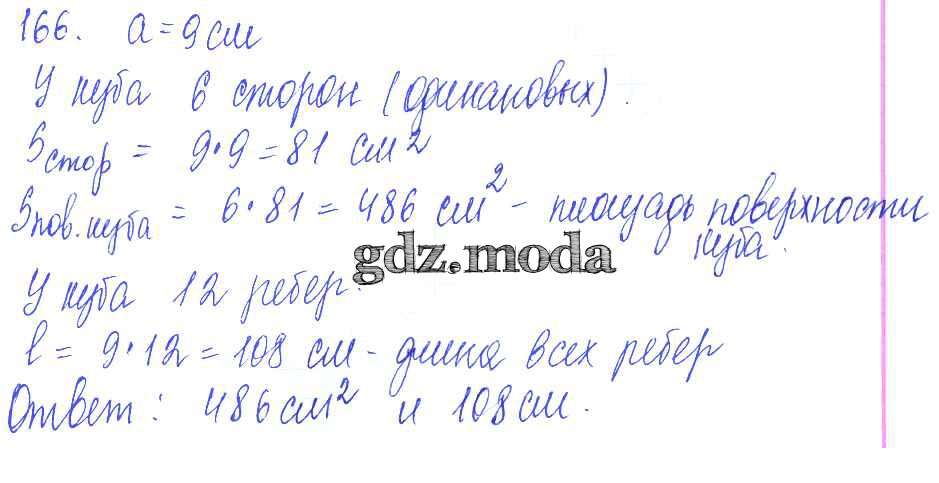 166. a = 9 см
У куба 6 сторон (одинаковых).
Sстор = 9·9 = 81 см²
Sпов.куба = 6·81 = 486 см² - площадь поверхности
куба.
gdz.moda
У куба 12 ребер.
l = 9·12 = 108 см - длина всех ребер
Ответ: 486 см² и 108 см.